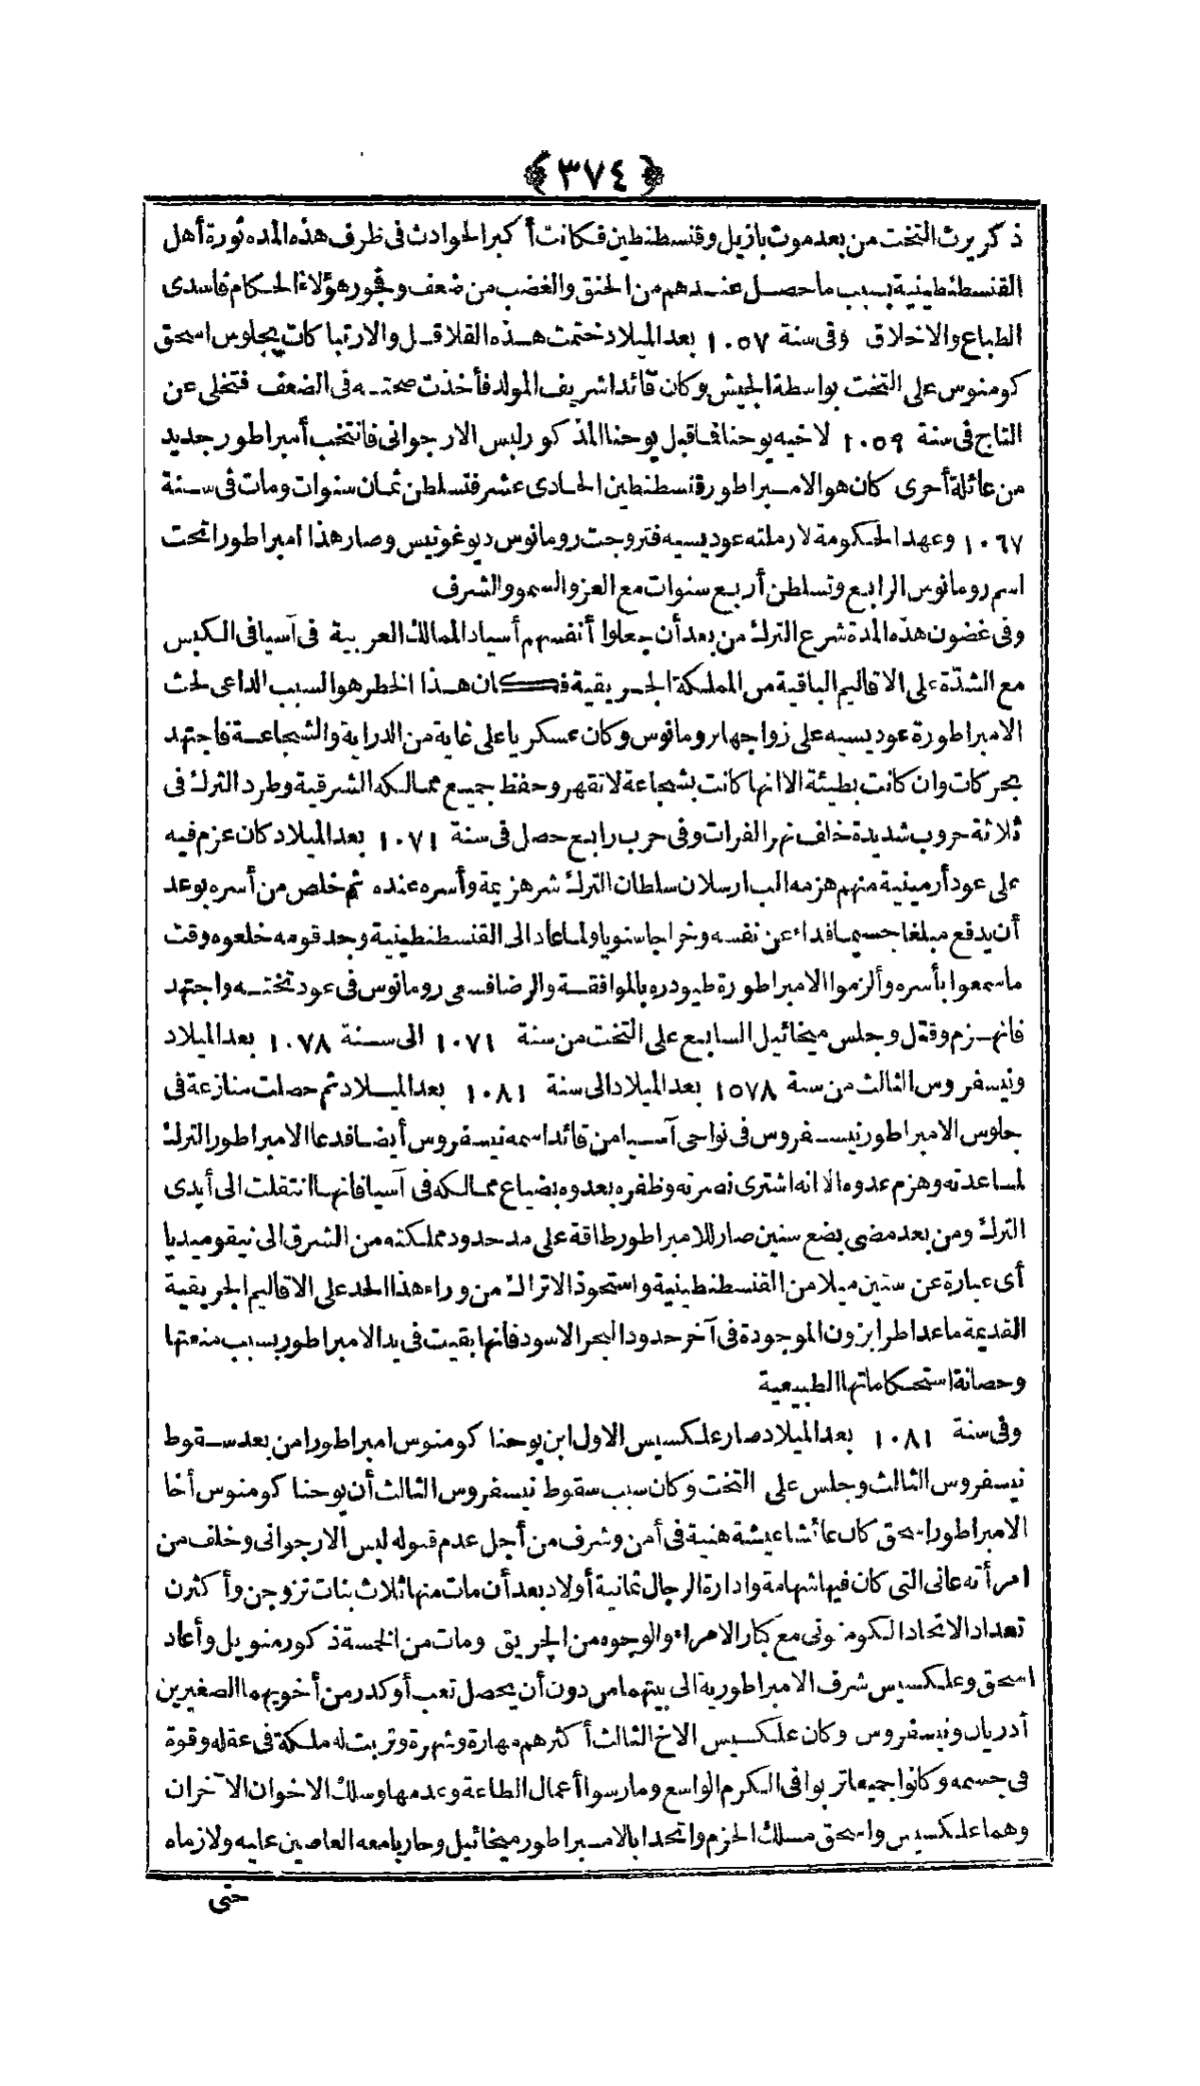 ﴿٣٧٤﴾
ذكر يرث التخت من بعد موت بازيل وقنسطنطين فكانت أكبر الحوادث فى ظرف هذه المده ثورة أهل
القنسطنطينية بسبب ما حصل عندهم من الحنق والغضب من ضعف وفجور هؤلاء الحكام فاسدى
الطباع والاخلاق وفى سنة ١٠٥٧ بعد الميلاد ختمت هذه القلاقل والارتباكات بجلوس اسحق
كومنوس على التخت بواسطة الجيش وكان قائدا شريف المولد فأخذت صحته فى الضعف فتخلى عن
التاج فى سنة ١٠٥٩ لاخيه يوحنا فما قبل يوحنا المذكور لبس الارجوانى فانتخب أمبراطور جديد
من عائلة أخرى كان هو الامبراطور قنسطنطين الحادى عشر فتسلطن ثمان سنوات ومات فى سنة
١٠٦٧ وعهد الحكومة لارملته عوديسيه فتزوجت رومانوس ديوغونيس وصار هذا امبراطورا تحت
اسم رومانوس الرابع وتسلطن أربع سنوات مع العز والسمو والشرف
وفى غضون هذه المدة شرع الترك من بعد أن جعلوا أنفسهم أسياد الممالك العربية فى آسيا فى الكبس
مع الشدّة على الاقاليم الباقية من المملكة الجريقية فكان هذا الخطر هو السبب الداعى لحث
الامبراطورة عوديسيه على زواجها برومانوس وكان عسكريا على غاية من الدراية والشجاعة فاجتهد
بحركات وان كانت بطيئة الا انها كانت بشجاعة لا تقهر وحفظ جميع ممالكه الشرقية وطرد الترك فى
ثلاثة حروب شديدة خلف نهر الفرات وفى حرب رابع حصل فى سنة ١٠٧١ بعد الميلاد كان عزم فيه
على عود أرمينية منهم هزمه الب ارسلان سلطان الترك شر هزيمة وأسره عنده ثم خلص من أسره بوعد
أن يدفع مبلغا جسيما فداء عن نفسه وخراجا سنويا ولما عاد الى القنسطنطينية وجد قومه خلعوه وقت
ما سمعوا بأسره وألزموا الامبراطورة طيودره بالموافقة والرضا فسعى رومانوس فى عود تخته واجتهد
فانهزم وقتل وجلس ميخائيل السابع على التخت من سنة ١٠٧١ الى سنة ١٠٧٨ بعد الميلاد
ونيسفروس الثالث من سنة ١٥٧٨ بعد الميلاد الى سنة ١٠٨١ بعد الميلاد ثم حصلت منازعة فى
جلوس الامبراطور نيسفروس فى نواحى آسيا من قائد اسمه نيسفروس أيضا فدعا الامبراطور الترك
لمساعدته وهزم عدوه الا انه اشترى نصرته وظفره بعدوه بضياع ممالكه فى آسيا فانها انتقلت الى أيدى
الترك ومن بعد مضى بضع سنين صار للامبراطور طاقة على مد حدود مملكته من الشرق الى نيقوميديا
أى عبارة عن ستين ميلا من القنسطنطينية واستحوذ الاتراك من وراء هذا الحد على الاقاليم الجريقية
القديمة ما عدا طرابزون الموجودة فى آخر حدود البحر الاسود فانها بقيت فى يد الامبراطور بسبب منعتها
وحصانة استحكاماتها الطبيعية
وفى سنة ١٠٨١ بعد الميلاد صار علكسيس الاول ابن يوحنا كومنوس امبراطورا من بعد سقوط
نيسفروس الثالث وجلس على التخت وكان سبب سقوط نيسفروس الثالث أن يوحنا كومنوس أخا
الامبراطور اسحق كان عائشا عيشة هنية فى أمن وشرف من أجل عدم قبوله لبس الارجوانى وخلف من
امرأته عانى التى كان فيها شهامة وادارة الرجال ثمانية أولاد بعد أن مات منها ثلاث بنات تزوجن وأكثرن
تعداد الاتحاد الكومنونى مع كبار الامراء والوجوه من الجريق ومات من الخمسة ذكور منويل وأعاد
اسحق وعلكسيس شرف الامبراطورية الى بيتهما من دون أن يحصل تعب أو كدر من أخويهما الصغيرين
أدريان ونيسفروس وكان علكسيس الاخ الثالث أكثرهم مهارة وشهرة وتربت له ملكة فى عقله وقوة
فى جسمه وكانوا جميعا تربوا فى الكرم الواسع ومارسوا أعمال الطاعة وعدمها وسلك الاخوان الآخران
وهما علكسيس واسحق مسلك الحزم واتحدا بالامبراطور ميخائيل وحاربا معه العاصين عليه ولازماه
حتى